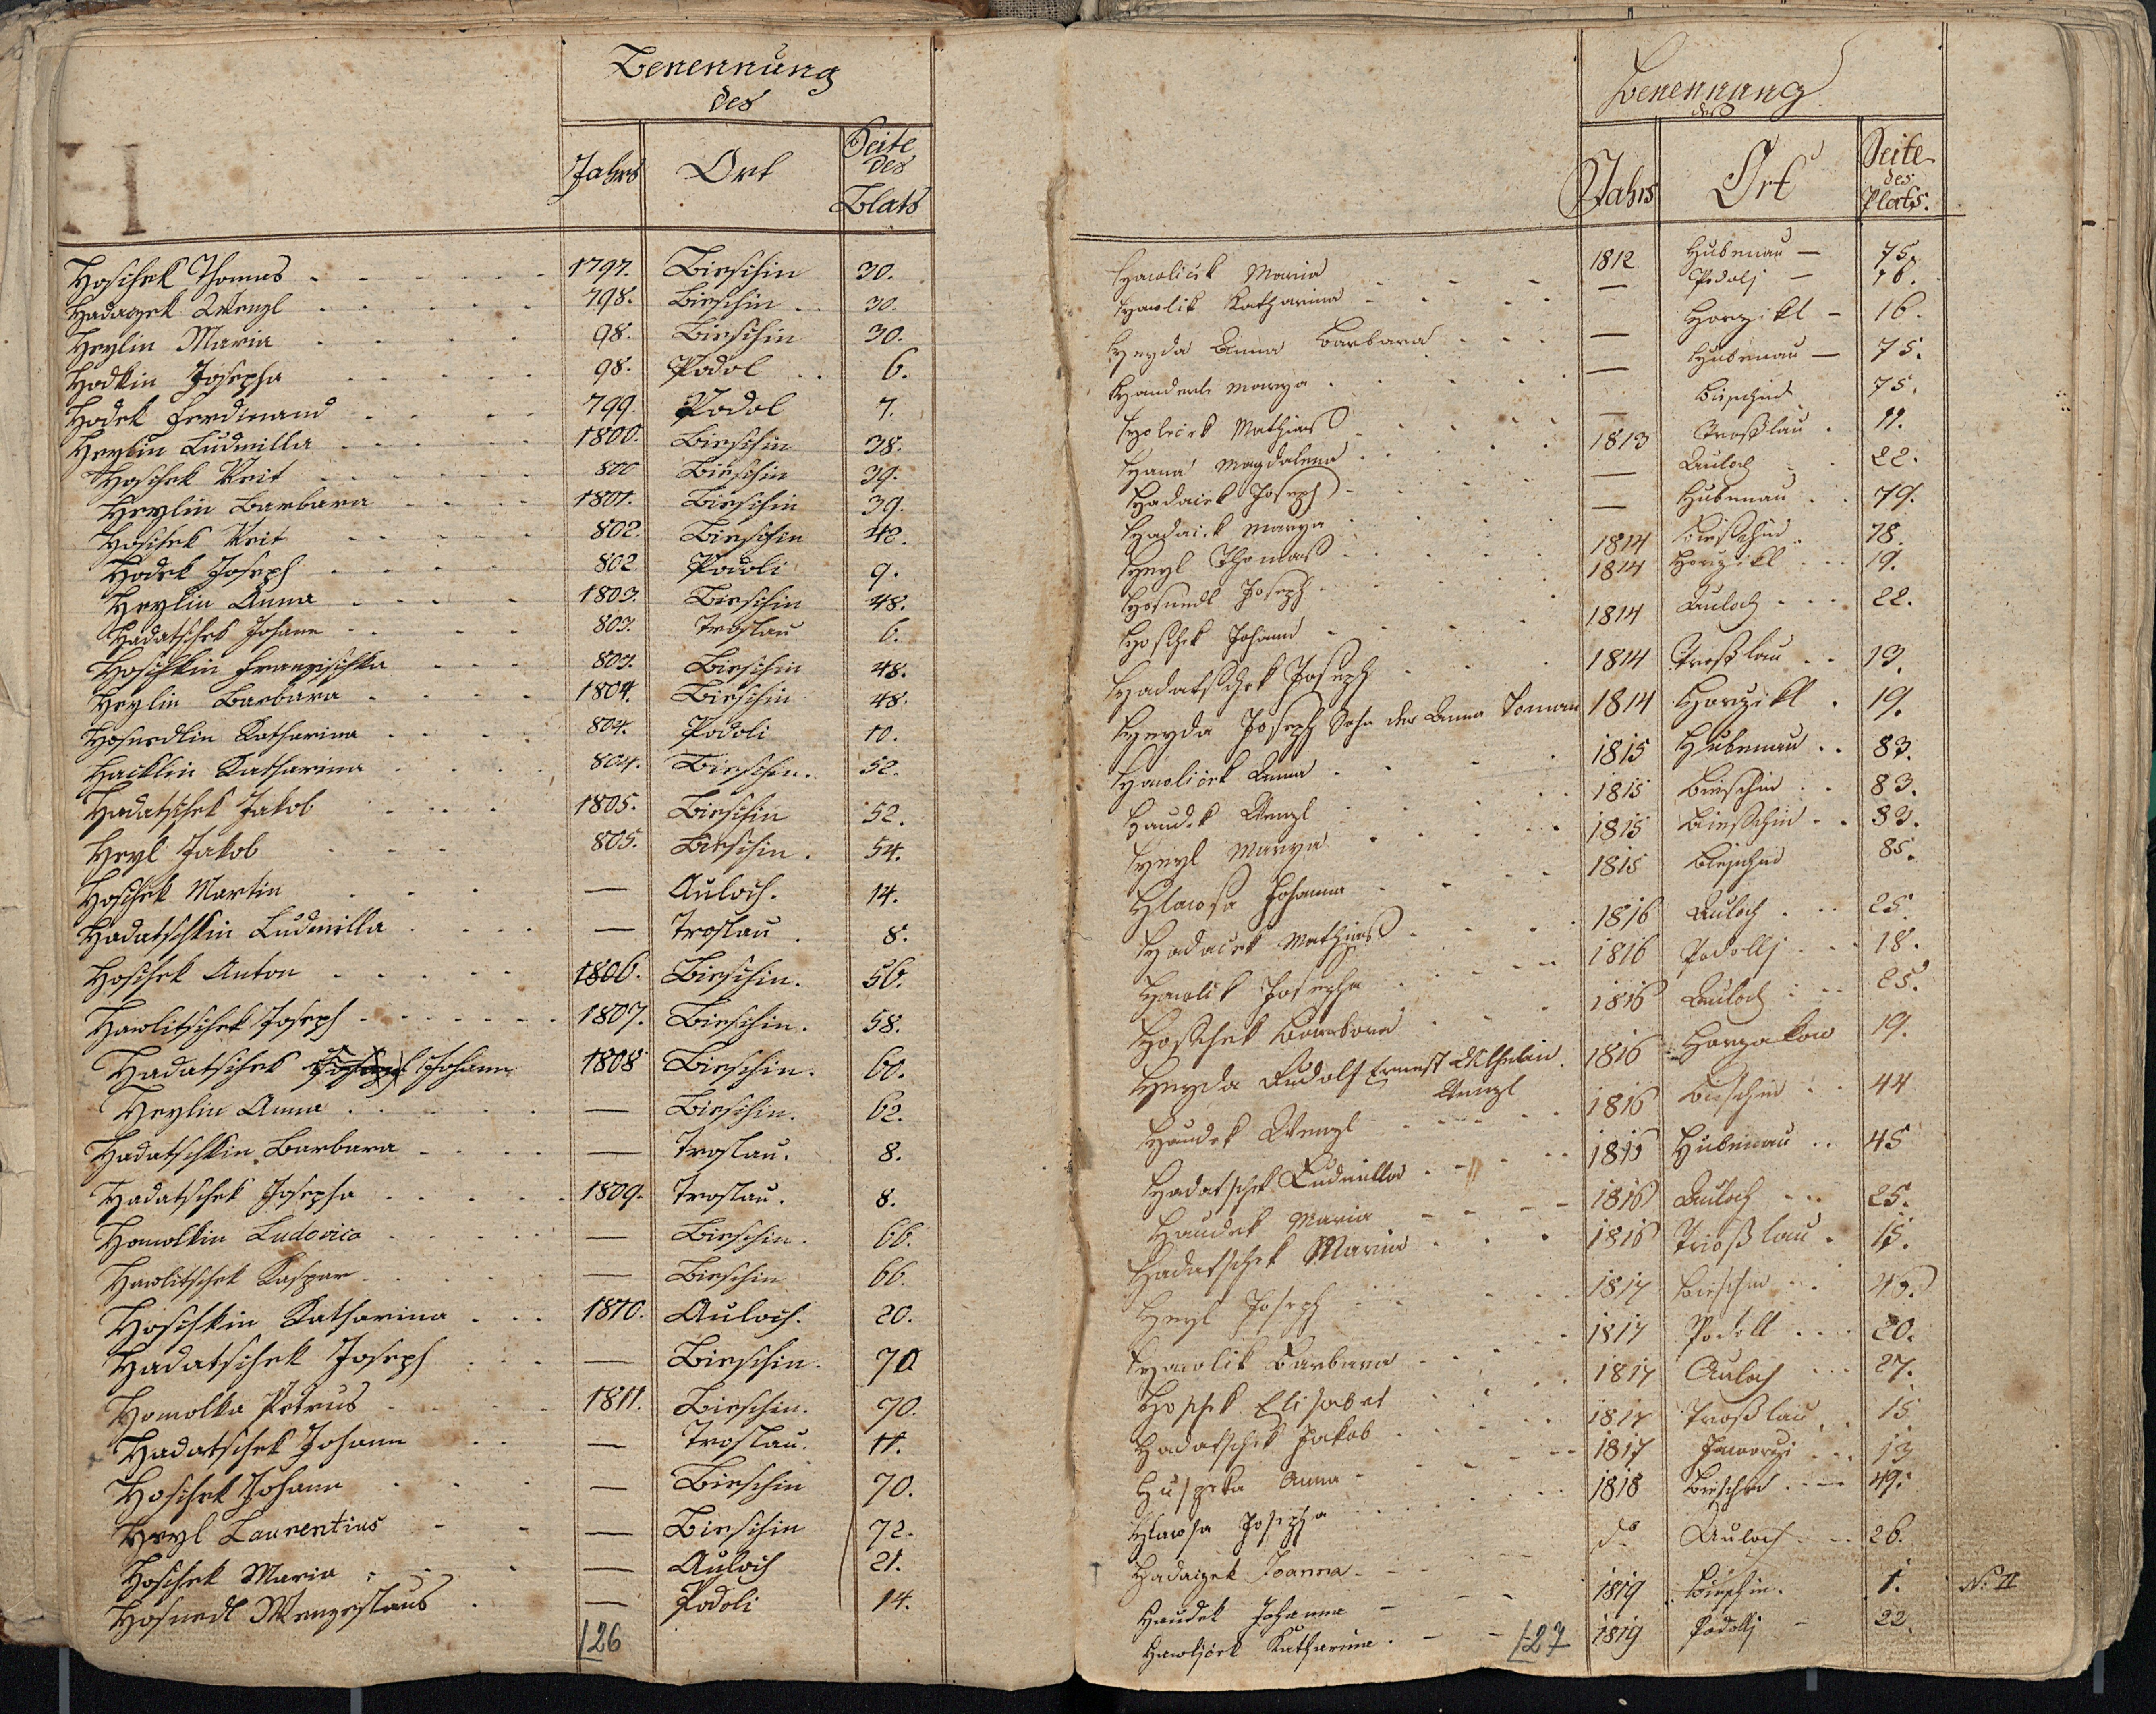 H
Benennung
des
Jahrs Ort Seite des Blats
Hoschek Thomas 1797. Bieschin 30.
Hadazek Wenzl 798. Bieschin 30.
Heylin Maria 98. Bieschin 30.
Hodkin Josepha 98. Podol 6.
Hodek Ferdinand 799. Podol 7.
Heylin Ludmilla 1800. Bieschin 38.
Hoschek Veit 800 Bieschin 39.
Heylin Barbara 1801. Bieschin 39.
Hoschek Veit 802. Bieschin 42.
Hodek Joseph 802. Podoli 9.
Heylin Anna 1803. Bieschin 48.
Hadatschek Johann 803. Troslau 6.
Hoschkin Franzischka 803. Bieschin 48.
Heylin Barbara 1804. Bieschin 48.
Hosnedlin Katharina 804. Podoli 10.
Hacklin Katharina 804. Bieschin. 52.
Hadatschek Jakob 1805. Bieschin 52.
Heyl Jakob 805. Bieschin. 54.
Hoschek Martin — Auloch. 14.
Hadatschkin Ludmilla — Troslau 8.
Hoschek Anton 1806. Bieschin. 56.
Hawlitschek Joseph 1807. Bieschin. 58.
Hadatschek Johann 1808 Bieschin. 60.
Heylin Anna — Bieschin. 62.
Hadatschkin Barbara — Troslau. 8.
Hadatschek Josepha 1809. Troslau. 8.
Homolkin Ludovica — Bieschin. 66.
Hawlitschek Kaspar — Bieschin 66.
Hoschkin Katharina 1810. Auloch. 20.
Hadatschek Joseph — Bieschin. 70
Homolka Petrus 1811. Bieschin. 70.
Hadatschek Johann — Troslau. 11.
Hoschek Johann — Bieschin 70.
Heyl Laurentius — Bieschin 72.
Hoschek Maria — Auloch 21.
Hosnedl Wenzeslaus — Podoli 14.
126
Benennung
des
Jahrs Ort Seite des Plats.
Hawlicek Maria 1812 Hubenau — 75.
Hawlik Katharina — Podolj — 16.
Heyda Anna Barbara — Horzikl — 16.
Marya — Hubenau — 75.
Mathias — Bieschin 75.
Hana Magdalena 1813 Troßlau 11.
Hadacek Joseph — Auloch 22.
Hadacek Marya — Hubenau 79.
Heyl Thomas 1814 Bieschin 78.
Hosnedl Joseph 1814 Horzikl 19.
Hoschek Johann 1814 Auloch 22.
Hadatschek Joseph 1814 Troßlau 13.
Heyda Joseph Sohn der Anna Toman 1814 Horzikl 19.
Hawlicek Anna 1815 Hubenau 83.
Haudek Wenzl 1815 Bieschin 83.
Heyl Marya 1815 Bieschin 83.
Hlawsa Johanna 1815 Bieschin 85.
Hadacek Mathias 1816 Auloch 25.
Hawlik Josepha 1816 Podollj 18.
Hoschek Barbora 1816 Auloch 25.
Heyda Rudolf Ernest Wilhelm 1816 Horzakow 19.
Wenzl
Haudek Wenzl 1816 Bieschin 44
Hadatschek Ludmilla 1816 Hubenau 45
Haudek Maria 1816 Auloch 25.
Hadatschek Maria 1816 Trioßlau 15.
Heyl Joseph 1817 Bieschin 46.
Hawlik Barbara 1817 Podoll 20.
Hoschek Elisabet 1817 Auloch 27.
Hadatschek Jakob 1817 Troßlau 15
Huspeka Anna 1817 Jaworzi 13
Hlawsa Josepha 1818 Bieschin 49.
Hadaizek Joanna do Auloch 26.
Haudek Johanna 1819 Bieschin. 1. No. II
Hawljcek Katharina 1819 Podollj — 22.
127